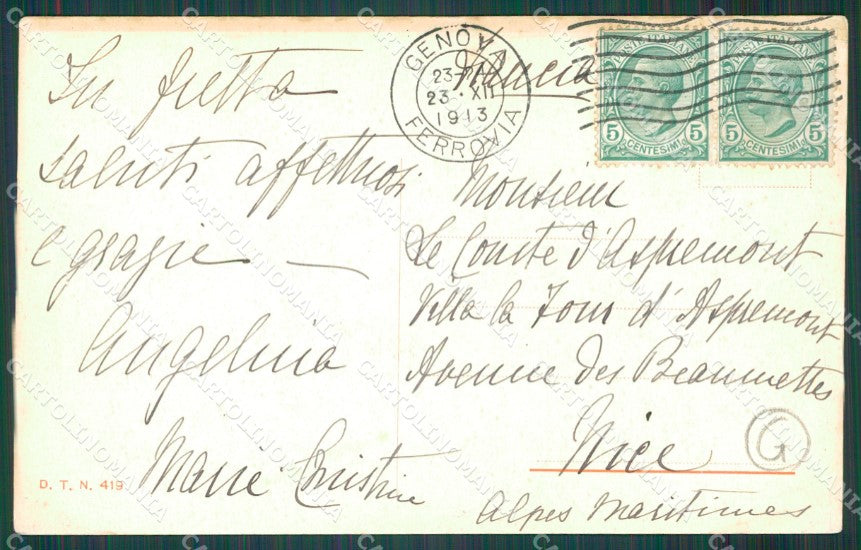 In fretta
saluti affettuosi
e grazie —
Angelina
Marie Christine
D. T. N. 419
GENOVA
23 XII
1913
FERROVIA
Francia
5 CENTESIMI 5
5 CENTESIMI 5
Monsieur
Le Comte d'Aspremont
Villa la Tour d'Aspremont
Avenue des Beaumettes
Nice
Alpes Maritimes
G
CARTOLINOMANIA